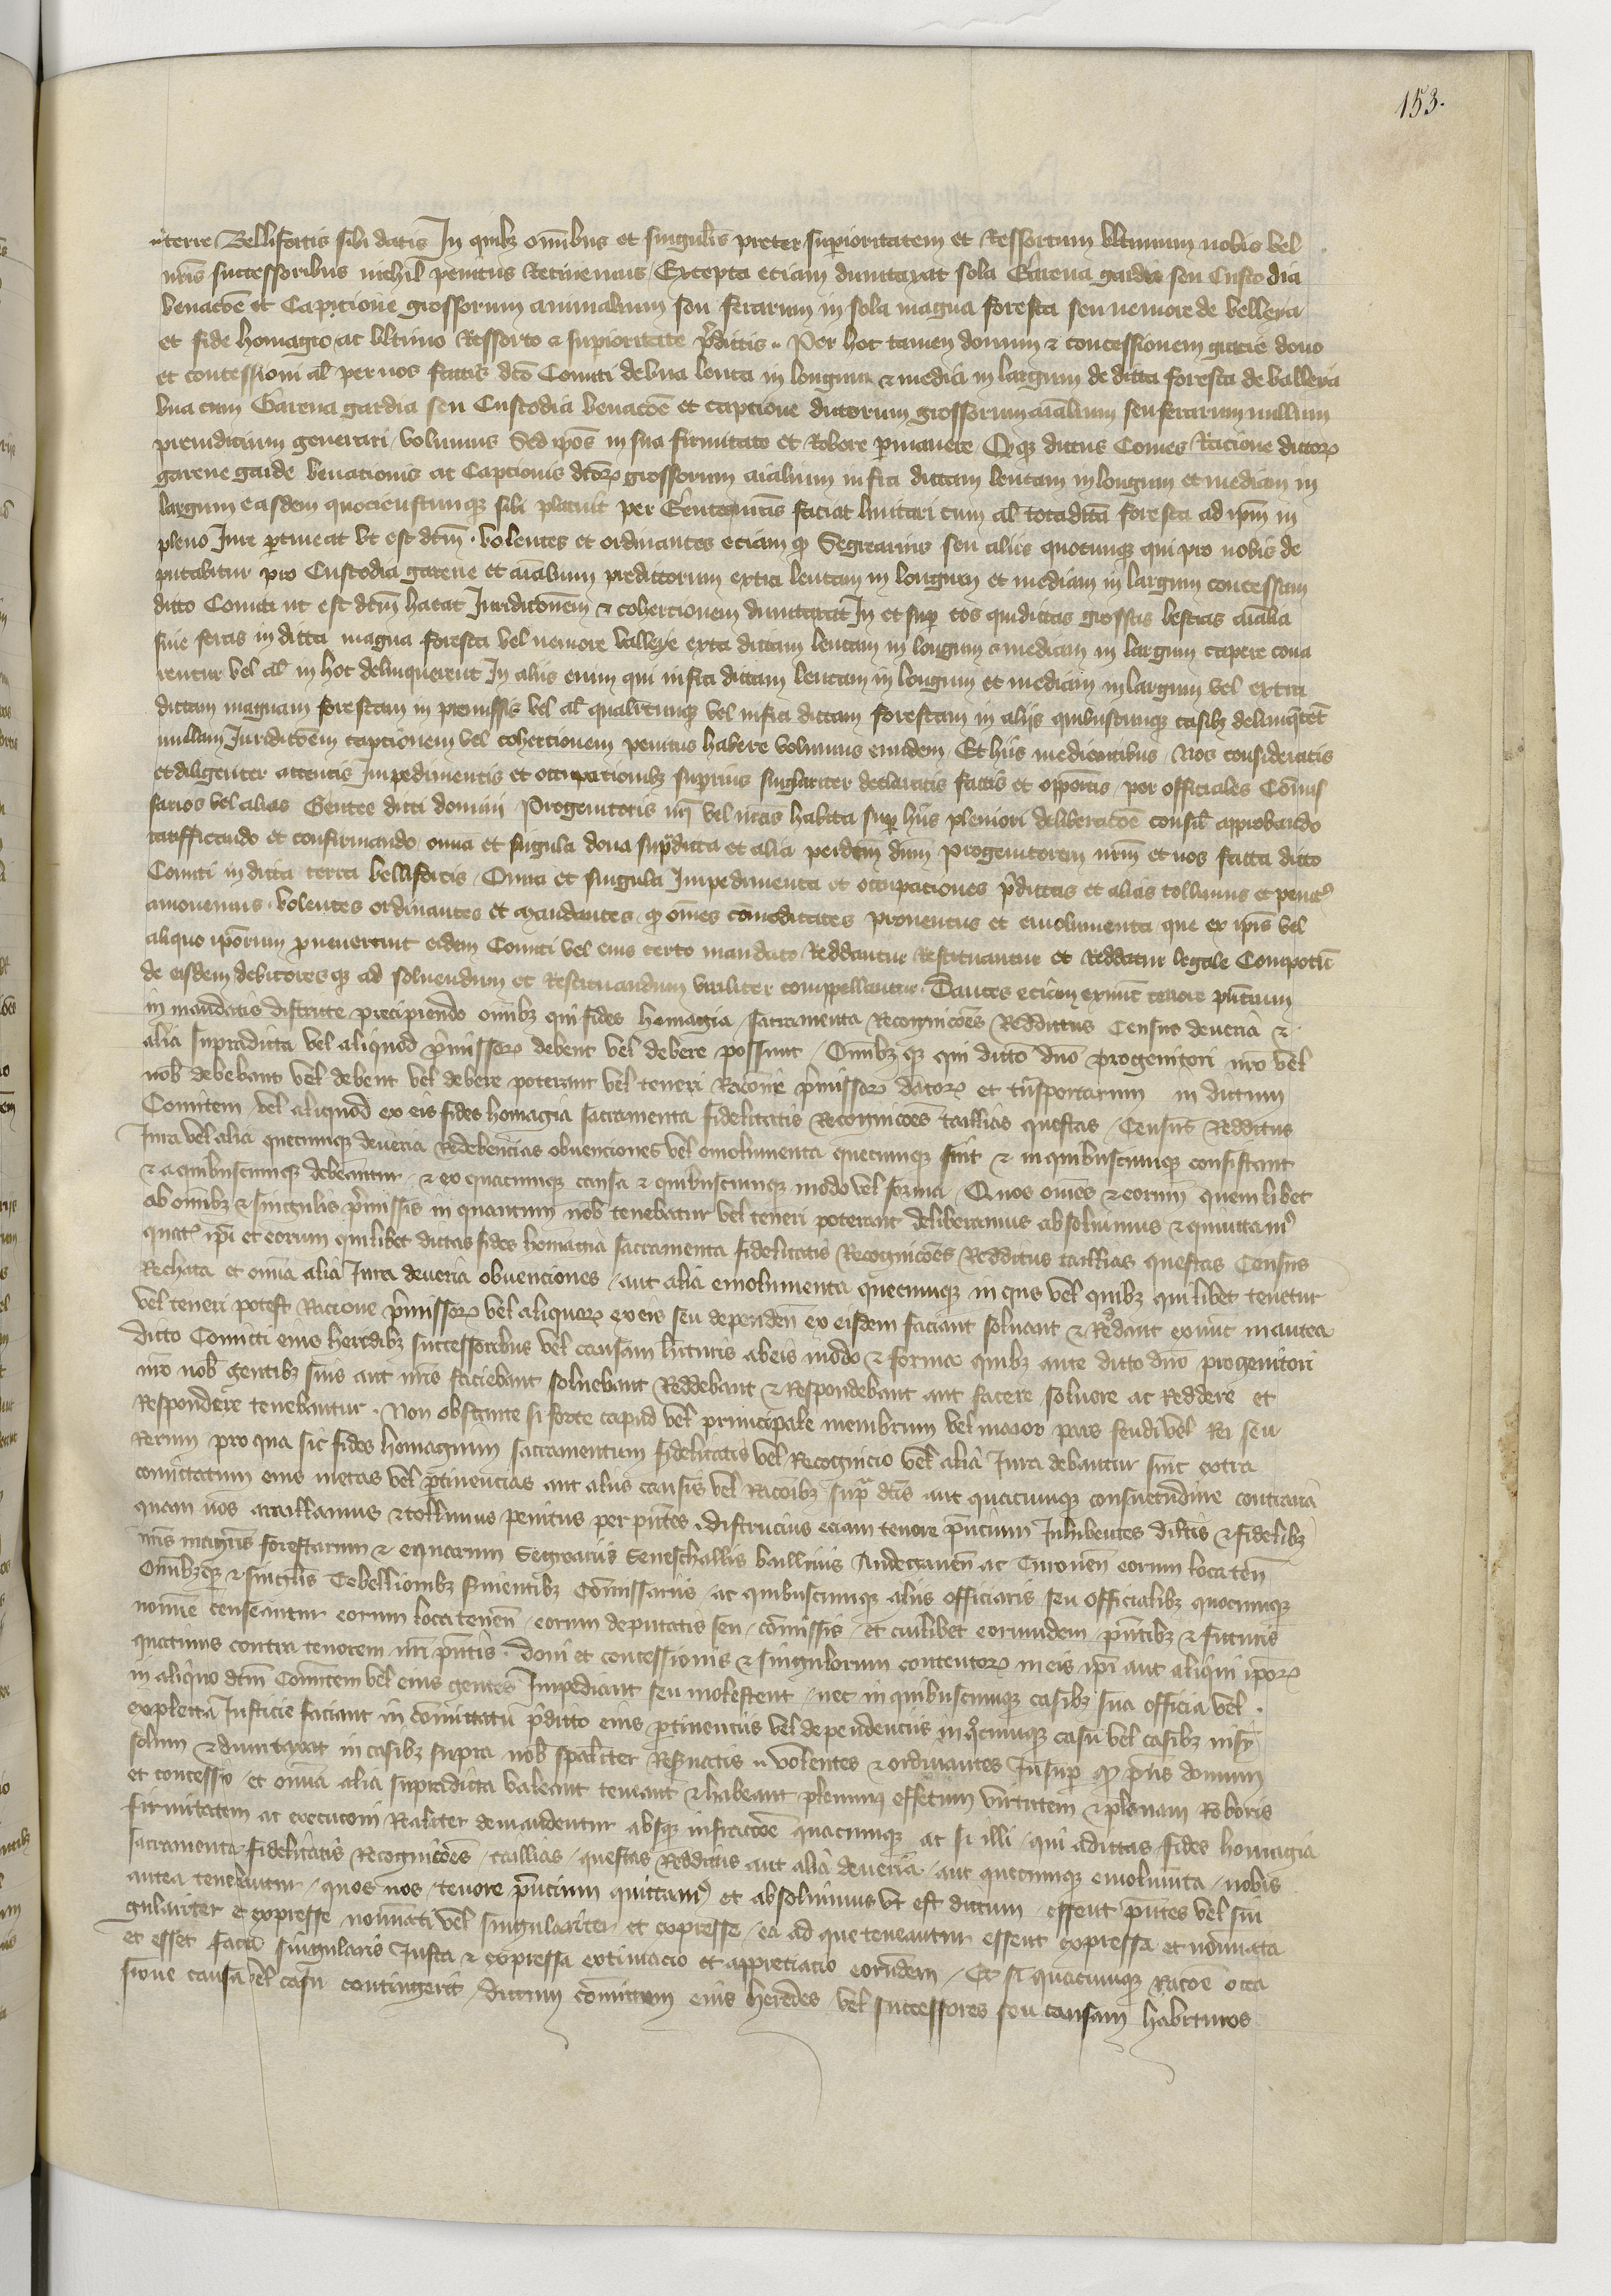 153.
terre Bellifortis sibi datis In quibz omibus et singulis preter superioritatem et Ressortum vltimum nobis vel
nris successoribus nichil penitus Retinemus Excepta eciam dumtaxat sola Garena gardia seu Custodia
venacoe et Capcione grossorum animalium seu ferarum in sola magna foresta seu nemore de valleya
et fide homagio ac vltimo Ressorto et superioritate pdictis. Per hoc tamen donum et concessionem gracie dono
et concessioni al per nos factis dco Comiti de vna leuca in longum et media in largum de dicta foresta de valleya
vna cum Garena gardia seu Custodia venacoe et capcione dictorum grossorum aialium seu ferarum nullum
preiudicium generari volumus Sed ipos in sua firmitate et Robore permanere Qz dictus Comes Racione dictor
garene garde venacionis ac Capcionis dcor grossorum aialium infra dictam leucam in longum et mediam in
largum easdem quocienscumqz sibi placuit per Gentes suas faciat limitari cum al tota dicta foresta ad ipm in
pleno Iure ptineat vt est dcm. volentes et ordinantes eciam qz Segrearius seu alius quocumqz qui pro nobis de
putabitur pro Custodia garene et aialium predictorum extra leucam in longum et mediam in largum concessam
dicto Comiti ut est dcm habeat Iuridiconem et cohercionem dumtaxat In et sup eos qui dictas grossas bestias aialia
siue feras in dicta magna foresta vel nemore valleye extra dictam leucam in longum et mediam in largum capere cona
rentur vel al in hoc delinquerent In aliis enim qui infra dictam leucam in longum et mediam in largum vel extra
dictam magnam forestam in premissis vel al qualitercumqz vel infra dictam forestam in aliis quibuscumqz casibz delinquent
nullam Iuridicoem capcionem vel cohercionem penitus habere volumus eundem Et hiis mediantibus Nos consideratis
et diligenter attentis Impedimentis et occupacionibz superius singlariter declaratis factis et apposits per officiales Comis
sarios vel alias Gentes dicti domini Progenitoris nri vel nras habita sup hiis pleniori deliberacoe consil approbando
ratifficando et confirmando omia et singula dona supdicta et alia per dcm dnm progenitorem nrm et nos facta dicto
Comiti in dicta terra bellifortis Omia et singula Impedimenta et occupaciones pdictas et alias tollimus et penits
amouemus. volentes ordinantes et mandantes qz omes comoditates prouentus et emolumenta que ex ipis vel
aliquo iporum puenerunt eidem Comiti vel eius certo mandato Reddantur Restituantur et Reddatur legale Compotu
de eisdem debitoresqz ad soluendum et Restituandum viriliter compellantur. Dantes eciam exnunc tenore pntium
in mandatis districte precipiendo omibz qui fides homagia sacramenta Recognicoes Redditus Census deueria et
alia supradicta vel aliquod pmissor debent vel debere possunt Omibz qz qui dicto dno Progenitori nro vel
nob debebant vel debent vel debere poterant vel teneri Racione pmissor dator et tnsportarum in dictum
Comitem vel aliquod ex eis fides homagia sacramenta fidelitatis Recognicoes tallias questas Census Redditus
Iura vel alia quecumqz deueria Redebencias obuenciones vel emolumenta quecumqz sint et in quibuscumqz consistant
et a quibuscumqz debeantur et ex quacumqz causa et quibuscumqz modo vel forma Quos omes et eorum quemlibet
ab omibz et singulis pmissis in quantum nob tenebatur vel teneri poterant deliberamus absoluimus et quittams
quats ipi et eorum quilibet dictas fides homagia sacramenta fidelitatis Recognicoes Redditus tallias questas Census
Rechata et omia alia Iura deueria obuenciones aut alia emolumenta quecumqz in qus vel quibz quilibet tenetur
vel teneri potest Racione pmissor vel aliquor ex eis seu dependen ex eisdem faciant soluant et Reddant exnunc in antea
dicto Comiti eius heredibz successoribus vel causam hituris ab eis modo et forma quibz ante dicto dno progenitori
nro nob gentibz suis aut nris faciebant soluebant Reddebant et Respondebant aut facere soluere ac Reddere et
Respondere tenebantur. Non obstante si forte capud vel principale membrum vel maior pars feudi vel Rei seu
Rerum pro qua sic fides homagium sacramentum fidelitatis vel Recognicio vel alia Iura debantur sint extra
comitatum eius metas vel ptinencias aut aliis causis vel Racoibz supra dcis aut quacumqz consuetudine contraria
quam nos anullamus et tollimus penitus per pntes. districius eciam tenore pncium Inhibentes dilcis et fidelibz
nris magris forestarum et equarum Segreariis Seneschallis bailliuis Andegauen ac Turonen eorum loca ten
Omibzqz et singulis Tebellionibz seruientibz Comissariis ac quibuscumqz aliis officiariis seu officialibz quocumqz
nomine censeantur eorum loca tenen eorum deputatis seu comissis et cuilibet eorumdem pntibz et futuris
quatinus contra tenorem nri pntis. doni et concessionis et singulorum contentor in eis ipi aut aliqui ipor
in aliquo dcm Comitem vel eius gentes Impediant seu molestent nec in quibuscumqz casibz sua officia vel.
expletta Iusticie faciant in comitatu pdicto eius ptinenciis vel dependenciis in qocumqz casu vel casibz nisi
solum et dumtaxat in casibz supra nob spaliter Reseruatis volentes et ordinantes Insup qz pns donum
et concessio et omia alia supradicta valeant teneant et habeant plenum effectum virtutem et plenam Roboris
firmitatem ac execucioni Realiter demandentur absqz infraccoe quacumqz ac si illi qui ad dictas fides homagia
sacramenta fidelitatis Recognicoes tallias questas Redditus aut alia deueria aut quecumqz emolumta nobis
antea tenebantur quos nos tenore pncium quittams et absoluimus vt est dictum essent pntes vel sin
gulariter et expresse nominati vel singulariter et expresse ea ad que teneantur essent expressa et nominata
et esset facta singularis Iusta et expressa extimacio et appreciacio eorundem Et si quacumqz Racoe occa
sione causa vel casu contingerit dictum comitem eius heredes vel successores seu causam habituros